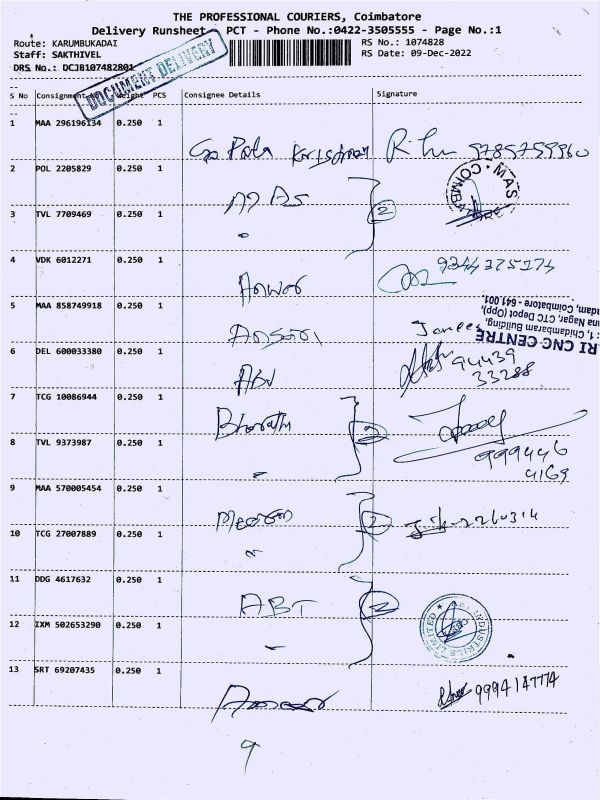 THE PROFESSIONAL COURIERS, Coimbatore
Delivery Runsheet - PCT - Phone No.:0422-3505555 - Page No.:1
Route: KARUMBUKADAI
RS No.: 1074828
Staff: SAKTHIVEL
RS Date: 09-Dec-2022
DRS No.: DCJB107482801
DOCUMENT DELIVERY
S No Consignment Weight PCS Consignee Details Signature
1 MAA 296196134 0.250 1
Krishnan 9785759960
2 POL 2205829 0.250 1
2
MAS COIMBA
3 TVL 7709469 0.250 1
4 VDK 6012271 0.250 1
9344375174
5 MAA 858749918 0.250 1
RI CNC CENTRE
1, Chidambaram Building,
na Nagar, CTC Depot (Opp),
dam, Coimbatore - 641 001
6 DEL 600033380 0.250 1
ABU
94439
33288
7 TCG 10086944 0.250 1
Bharath 2
8 TVL 9373987 0.250 1
999446
4169
9 MAA 570005454 0.250 1
2
10 TCG 27007889 0.250 1
11 DDG 4617632 0.250 1
ABT 2
INDUSTRIES LIMITED
12 IXM 502653290 0.250 1
13 SRT 69207435 0.250 1
9994147774
9